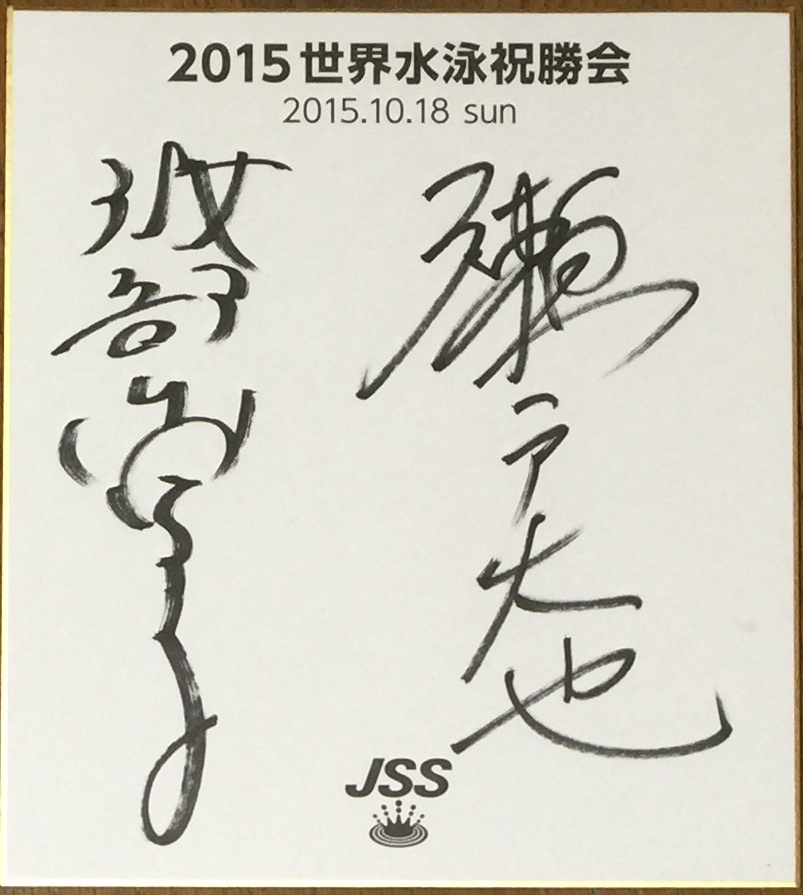 2015世界水泳祝勝会
2015.10.18 sun
瀬戸大也
渡部香生子
JSS